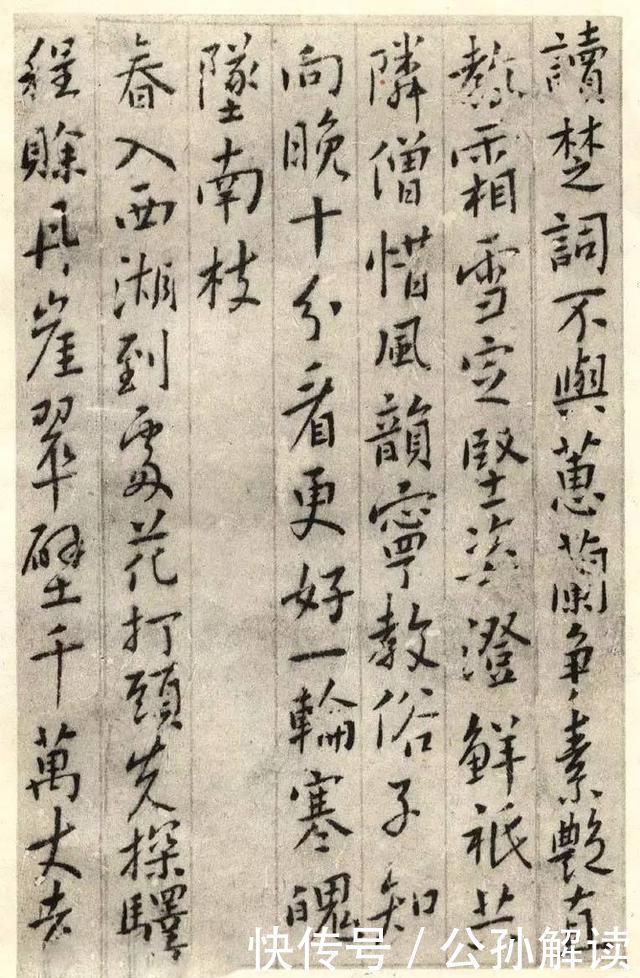 讀楚詞不與蕙蘭爭素艷直
教霜雪定堅姿澄鮮祇共
隣僧惜風韻寧教俗子知
向晚十分看更好一輪寒魄
墜南枝
春入西湖到處花打頭先探驛
程賒丹崖翠壁千萬丈
快传号 / 公孙解读